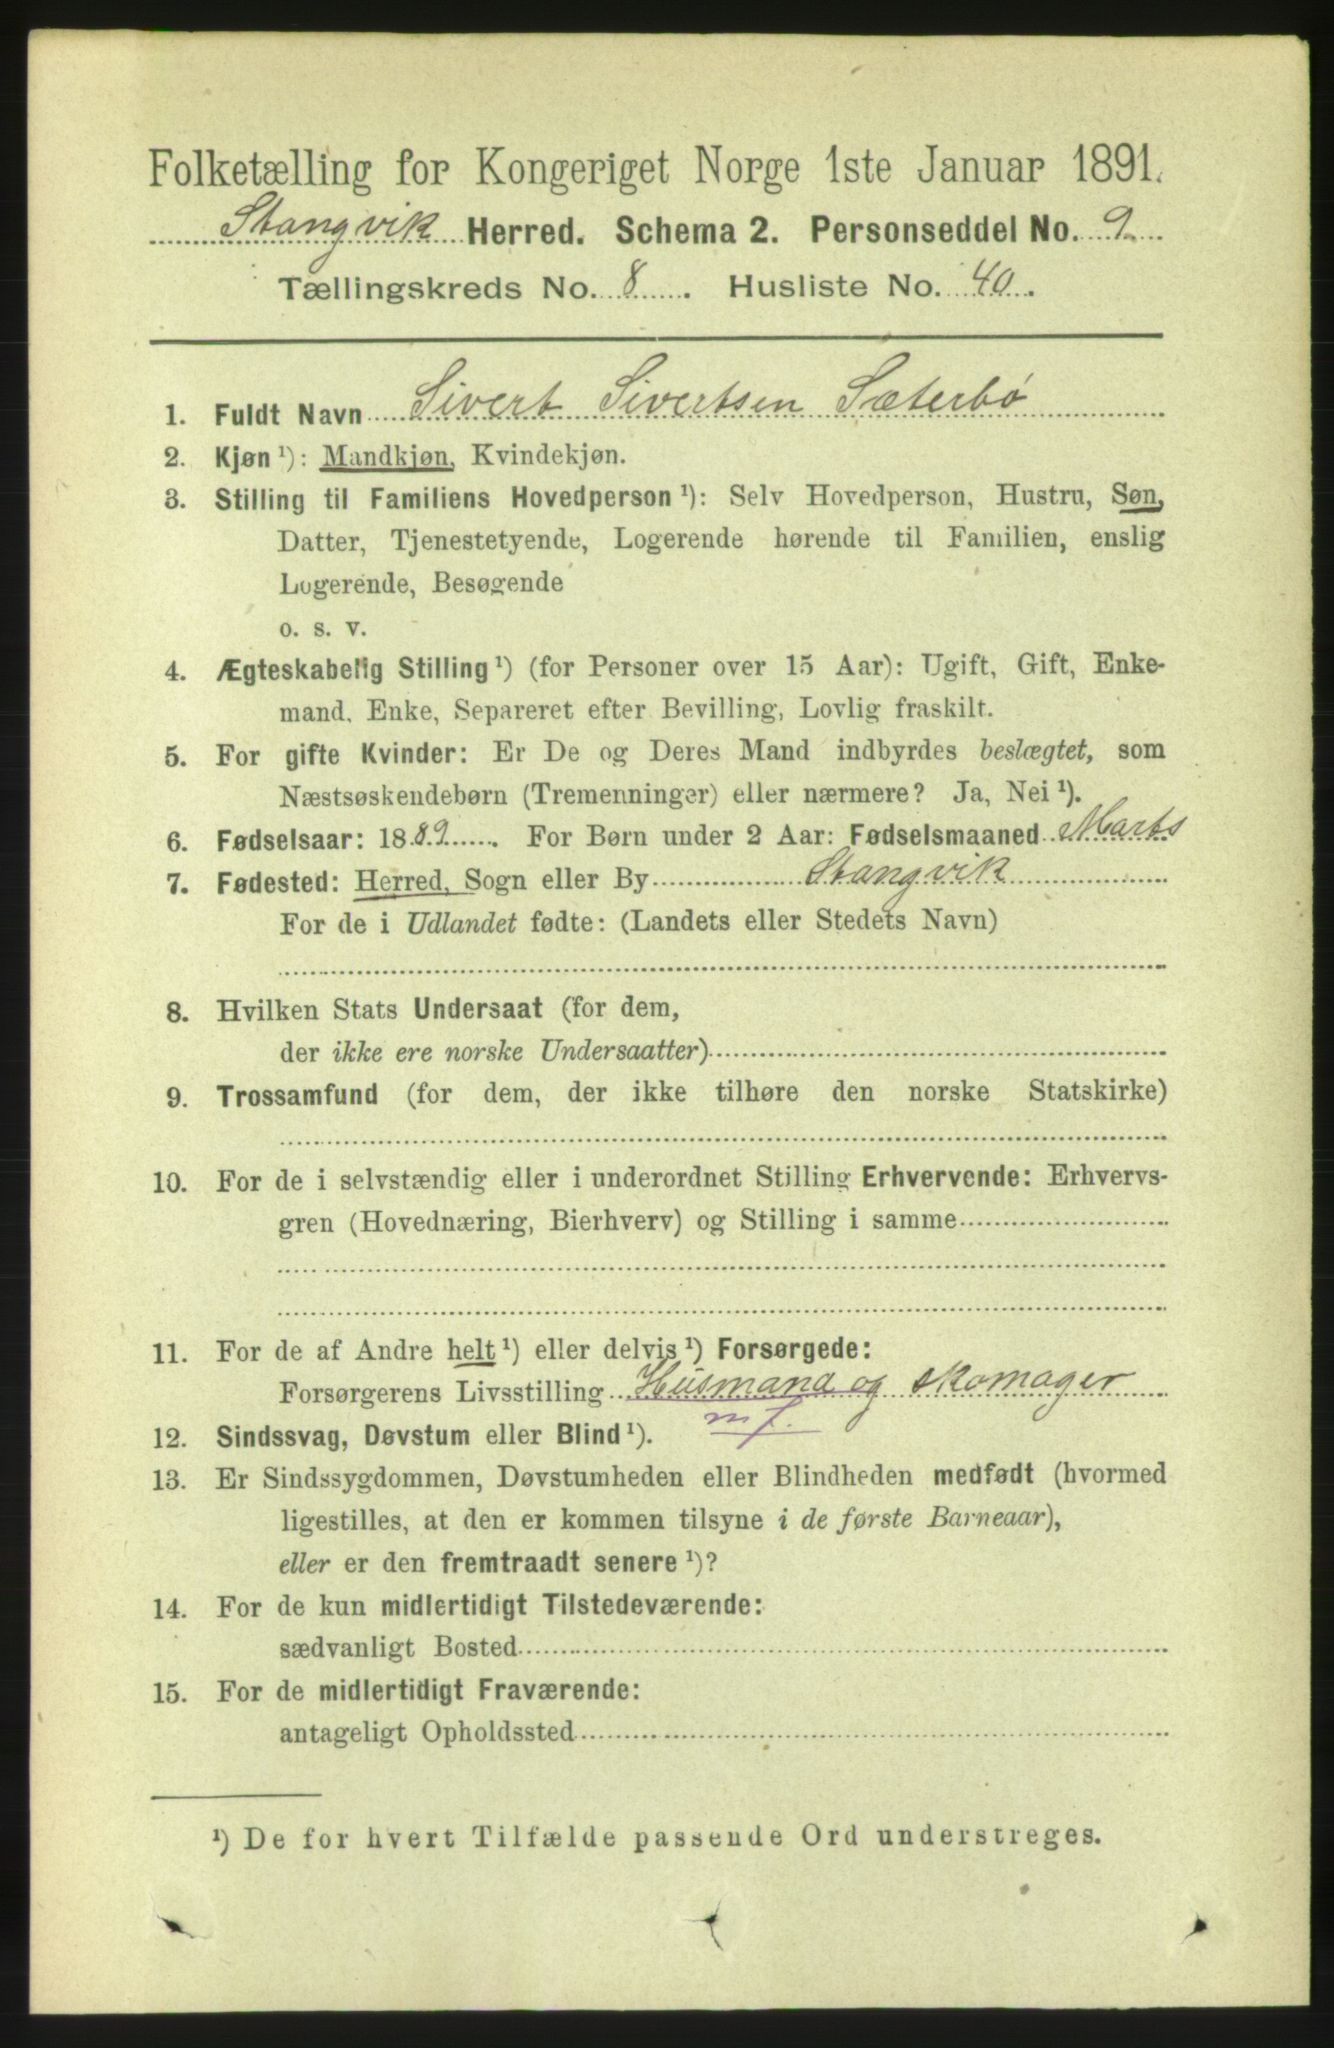 Folketælling for Kongeriget Norge 1ste Januar 1891.
Stangvik Herred. Schema 2. Personseddel No. 9
Tællingskreds No. 8. Husliste No. 40.
1. Fuldt Navn Sivert Sivertsen Sæterbø
2. Kjøn ¹): Mandkjøn, Kvindekjøn.
3. Stilling til Familiens Hovedperson ¹): Selv Hovedperson, Hustru, Søn,
Datter, Tjenestetyende, Logerende hørende til Familien, enslig
Logerende, Besøgende
o. s. v.
4. Ægteskabelig Stilling ¹) (for Personer over 15 Aar): Ugift, Gift, Enke-
mand, Enke, Separeret efter Bevilling, Lovlig fraskilt.
5. For gifte Kvinder: Er De og Deres Mand indbyrdes beslægtet, som
Næstsøskendebørn (Tremenninger) eller nærmere? Ja, Nei ¹).
6. Fødselsaar: 1889. For Børn under 2 Aar: Fødselsmaaned Marts
7. Fødested: Herred, Sogn eller By Stangvik
For de i Udlandet fødte: (Landets eller Stedets Navn)
8. Hvilken Stats Undersaat (for dem,
der ikke ere norske Undersaatter)
9. Trossamfund (for dem, der ikke tilhøre den norske Statskirke)
10. For de i selvstændig eller i underordnet Stilling Erhvervende: Erhvervs-
gren (Hovednæring, Bierhverv) og Stilling i samme
11. For de af Andre helt ¹) eller delvis ¹) Forsørgede:
Forsørgerens Livsstilling Husmand og skomager
m f.
12. Sindssvag, Døvstum eller Blind ¹).
13. Er Sindssygdommen, Døvstumheden eller Blindheden medfødt (hvormed
ligestilles, at den er kommen tilsyne i de første Barneaar),
eller er den fremtraadt senere ¹)?
14. For de kun midlertidigt Tilstedeværende:
sædvanligt Bosted
15. For de midlertidigt Fraværende:
antageligt Opholdssted
¹) De for hvert Tilfælde passende Ord understreges.